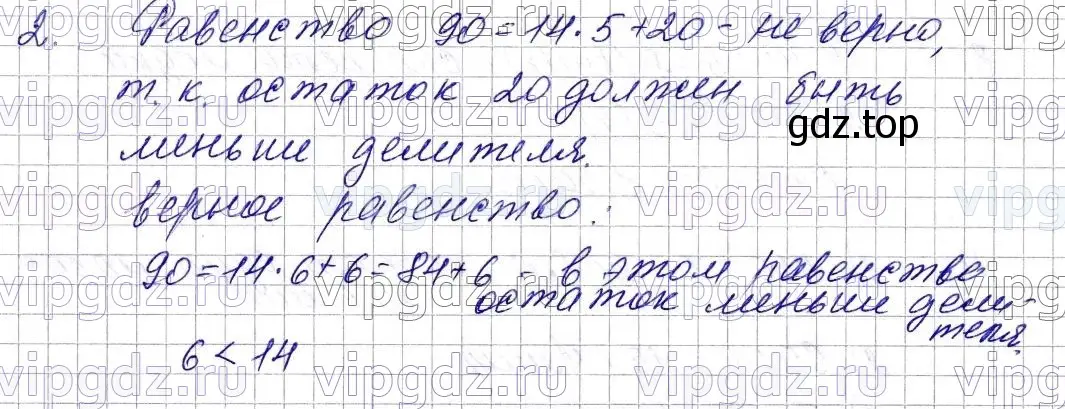 2. Равенство 90=14·5+20 - не верно,
т.к. остаток 20 должен быть
gdz.top
меньши делителя.
верное равенство:
90=14·6+6=84+6 - в этом равенстве
остаток меньши дели-
теля.
6<14